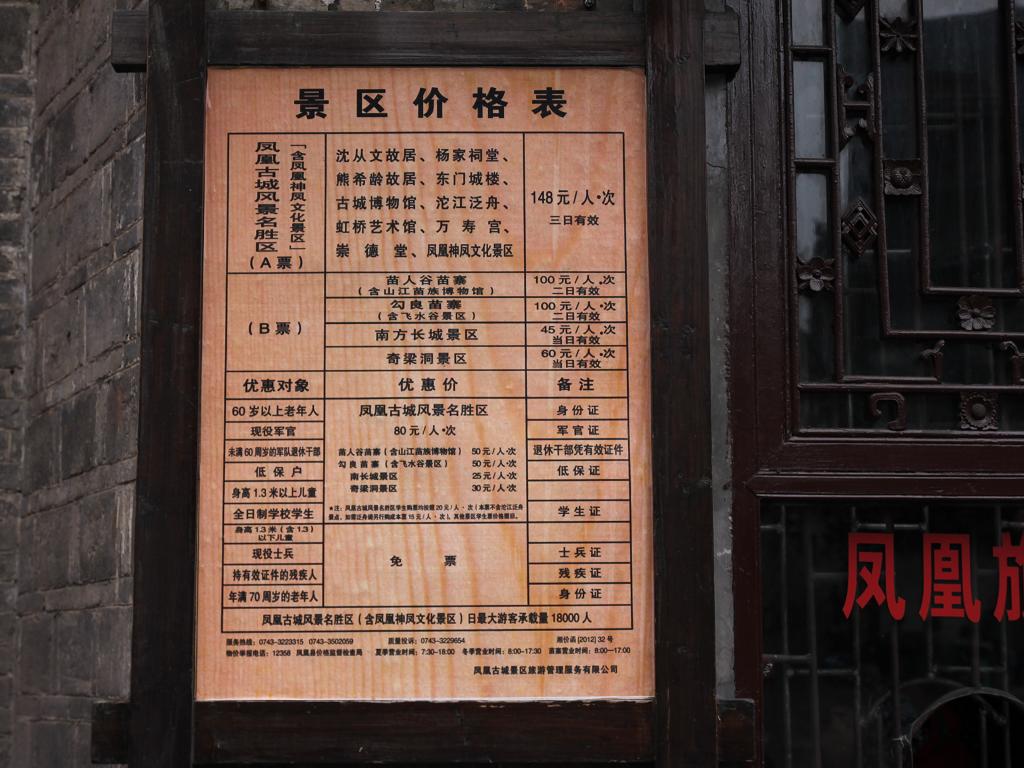 景区价格表
凤凰古城风景名胜区
「含凤凰神凤文化景区」
（A票）
沈从文故居、杨家祠堂、
熊希龄故居、东门城楼、
古城博物馆、沱江泛舟、
虹桥艺术馆、万寿宫、
崇德堂、凤凰神凤文化景区
148元/人·次
三日有效
（B票）
苗人谷苗寨
（含山江苗族博物馆）
100元/人·次
二日有效
勾良苗寨
（含飞水谷景区）
100元/人·次
二日有效
南方长城景区
45元/人·次
当日有效
奇梁洞景区
60元/人·次
当日有效
优惠对象 优惠价 备注
60岁以上老年人
现役军官
未满60周岁的军队退休干部
低保户
身高1.3米以上儿童
全日制学校学生
身高1.3米（含1.3）
以下儿童
现役士兵
持有效证件的残疾人
年满70周岁的老年人
凤凰古城风景名胜区
80元/人·次
苗人谷苗寨（含山江苗族博物馆） 50元/人·次
勾良苗寨（含飞水谷景区） 50元/人·次
南长城景区 25元/人·次
奇梁洞景区 30元/人·次
★注：凤凰古城风景名胜区学生购票均按照20元/人·次（本票不含沱江泛舟
景点，如需泛舟请另行购成本票15元/人·次），其他景区学生票价格照旧。
免票
身份证
军官证
退休干部凭有效证件
低保证
学生证
士兵证
残疾证
身份证
凤凰古城风景名胜区（含凤凰神凤文化景区）日最大游客承载量18000人
服务热线：0743-3223315 0743-3502059 质量投诉：0743-3229654 湘价函[2012]32号
物价举报电话：12358 凤凰县价格监督检查局 夏季营业时间：7:30-18:00 冬季营业时间：8:00-17:30 苗寨营业时间：8:00—17:00
凤凰古城景区旅游管理服务有限公司
凤凰旅